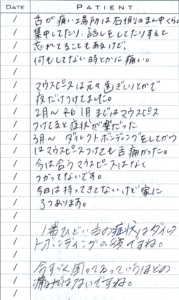 DATE PATIENT
舌が痛い場所は右側のまん中くらい
集中してたり、話しをしてたりすると
忘れてることもあるけど、
何もしてない時とかに痛い。
マウスピースは元々歯ぎしりとかで
夜だけつけてました。
2月〜 1月まではマウスピース
つけてると症状が楽だった
3月〜 ダイレクトボンディングをしてから
はマウスピースつけても舌痛かった。
今は合うマウスピースはなく
つかってないです。
今日は持ってきてないけど家に
3つあります。
1番ひどい舌の症状はダイレク
トボンディングの後ですね。
今すごく困ってるっていうほどの
痛みではないですね。